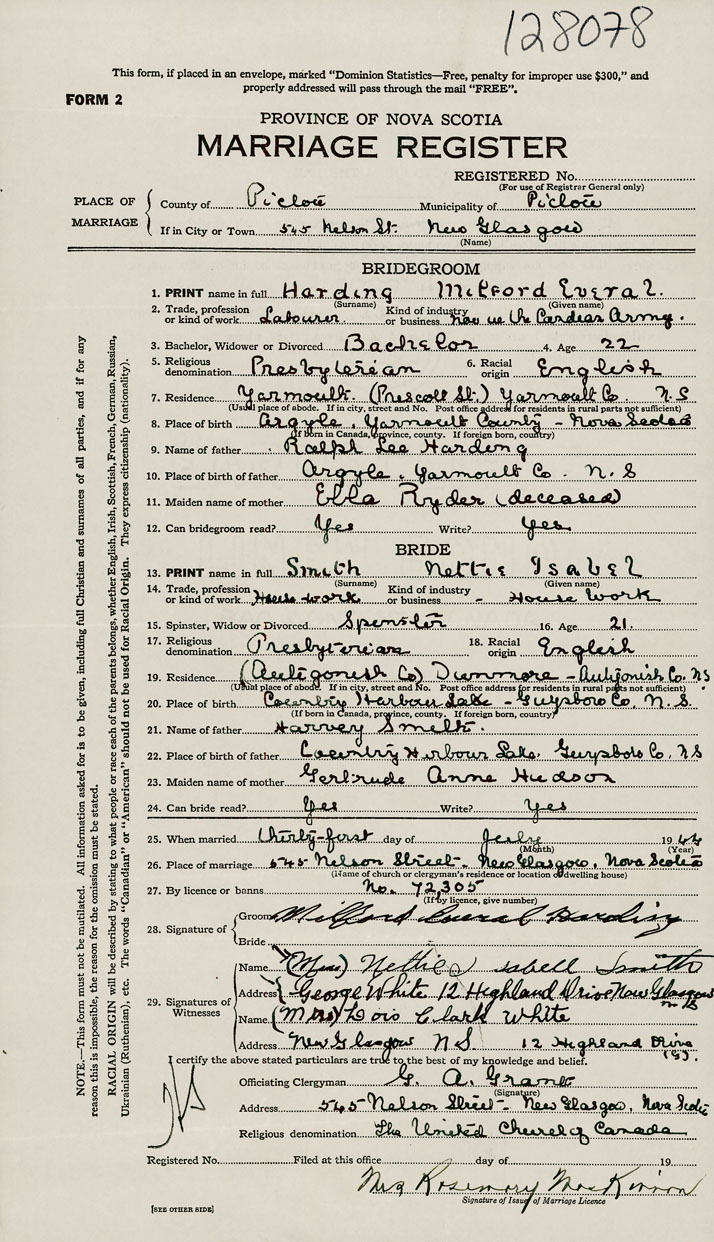 128078
This form, if placed in an envelope, marked "Dominion Statistics—Free, penalty for improper use $300," and
properly addressed will pass through the mail "FREE".
FORM 2
PROVINCE OF NOVA SCOTIA
MARRIAGE REGISTER
REGISTERED No.
(For use of Registrar General only)
PLACE OF MARRIAGE
County of Pictou Municipality of Pictou
If in City or Town 545 Nelson St. New Glasgow
(Name)
BRIDEGROOM
1. PRINT name in full Harding Milford Everal.
(Surname) (Given name)
2. Trade, profession or kind of work Labourer Kind of industry or business Now in the Army.
3. Bachelor, Widower or Divorced Bachelor 4. Age 22
5. Religious denomination Presbyterian 6. Racial origin English
7. Residence Yarmouth. (Prescott St.) Yarmouth Co. N.S
(Usual place of abode. If in city, street and No. Post office address for residents in rural parts not sufficient)
8. Place of birth Argyle, Yarmouth County - Nova Scotia
(If born in Canada, province, county. If foreign born, country)
9. Name of father Ralph Lee Harding
10. Place of birth of father Argyle, Yarmouth Co. N.S
11. Maiden name of mother Ella Ryder (deceased)
12. Can bridegroom read? Yes Write? Yes
BRIDE
13. PRINT name in full Smith Nettie Isabel
(Surname) (Given name)
14. Trade, profession or kind of work House-work Kind of industry or business - House Work
15. Spinster, Widow or Divorced Spinster 16. Age 21.
17. Religious denomination Presbyterian 18. Racial origin English
19. Residence (Antigonish Co) Dunmore - Antigonish Co. NS
(Usual place of abode. If in city, street and No. Post office address for residents in rural parts not sufficient)
20. Place of birth Country Harbour Lake - Guysboro Co. N.S.
(If born in Canada, province, county. If foreign born, country)
21. Name of father Harvey Smith.
22. Place of birth of father Country Harbour Lake. Guysboro Co. NS
23. Maiden name of mother Gertrude Anne Hudson
24. Can bride read? Yes Write? Yes
25. When married thirty-first day of July 1944
(Month) (Year)
26. Place of marriage 545 Nelson Street- New Glasgow, Nova Scotia
(Name of church or clergyman's residence or location of dwelling house)
27. By licence or banns No. 72,305
(If by licence, give number)
28. Signature of
Groom Milford Everal Harding
Bride
29. Signatures of Witnesses
Name (Miss) Nettie Isabell Smith
Address George White 12 Highland Drive New Glasgow
Name (Mrs) Lois Clark White
Address New Glasgow N.S. 12 Highland Drive
I certify the above stated particulars are true to the best of my knowledge and belief.
Officiating Clergyman G. A. Grant
(Signature)
Address 545 Nelson Street- New Glasgow, Nova Scotia
Religious denomination The United Church of Canada
Registered No. Filed at this office day of 19
Mrs Rosemary MacKinnon
Signature of Issuer of Marriage Licence
[SEE OTHER SIDE]
NOTE.—This form must not be mutilated. All information asked for is to be given, including full Christian and surnames of all parties, and if for any
reason this is impossible, the reason for the omission must be stated.
RACIAL ORIGIN will be described by stating to what people or race each of the parents belongs, whether English, Irish, Scottish, French, German, Russian,
Ukrainian (Ruthenian), etc. The words "Canadian" or "American" should not be used for Racial Origin. They express citizenship (nationality).